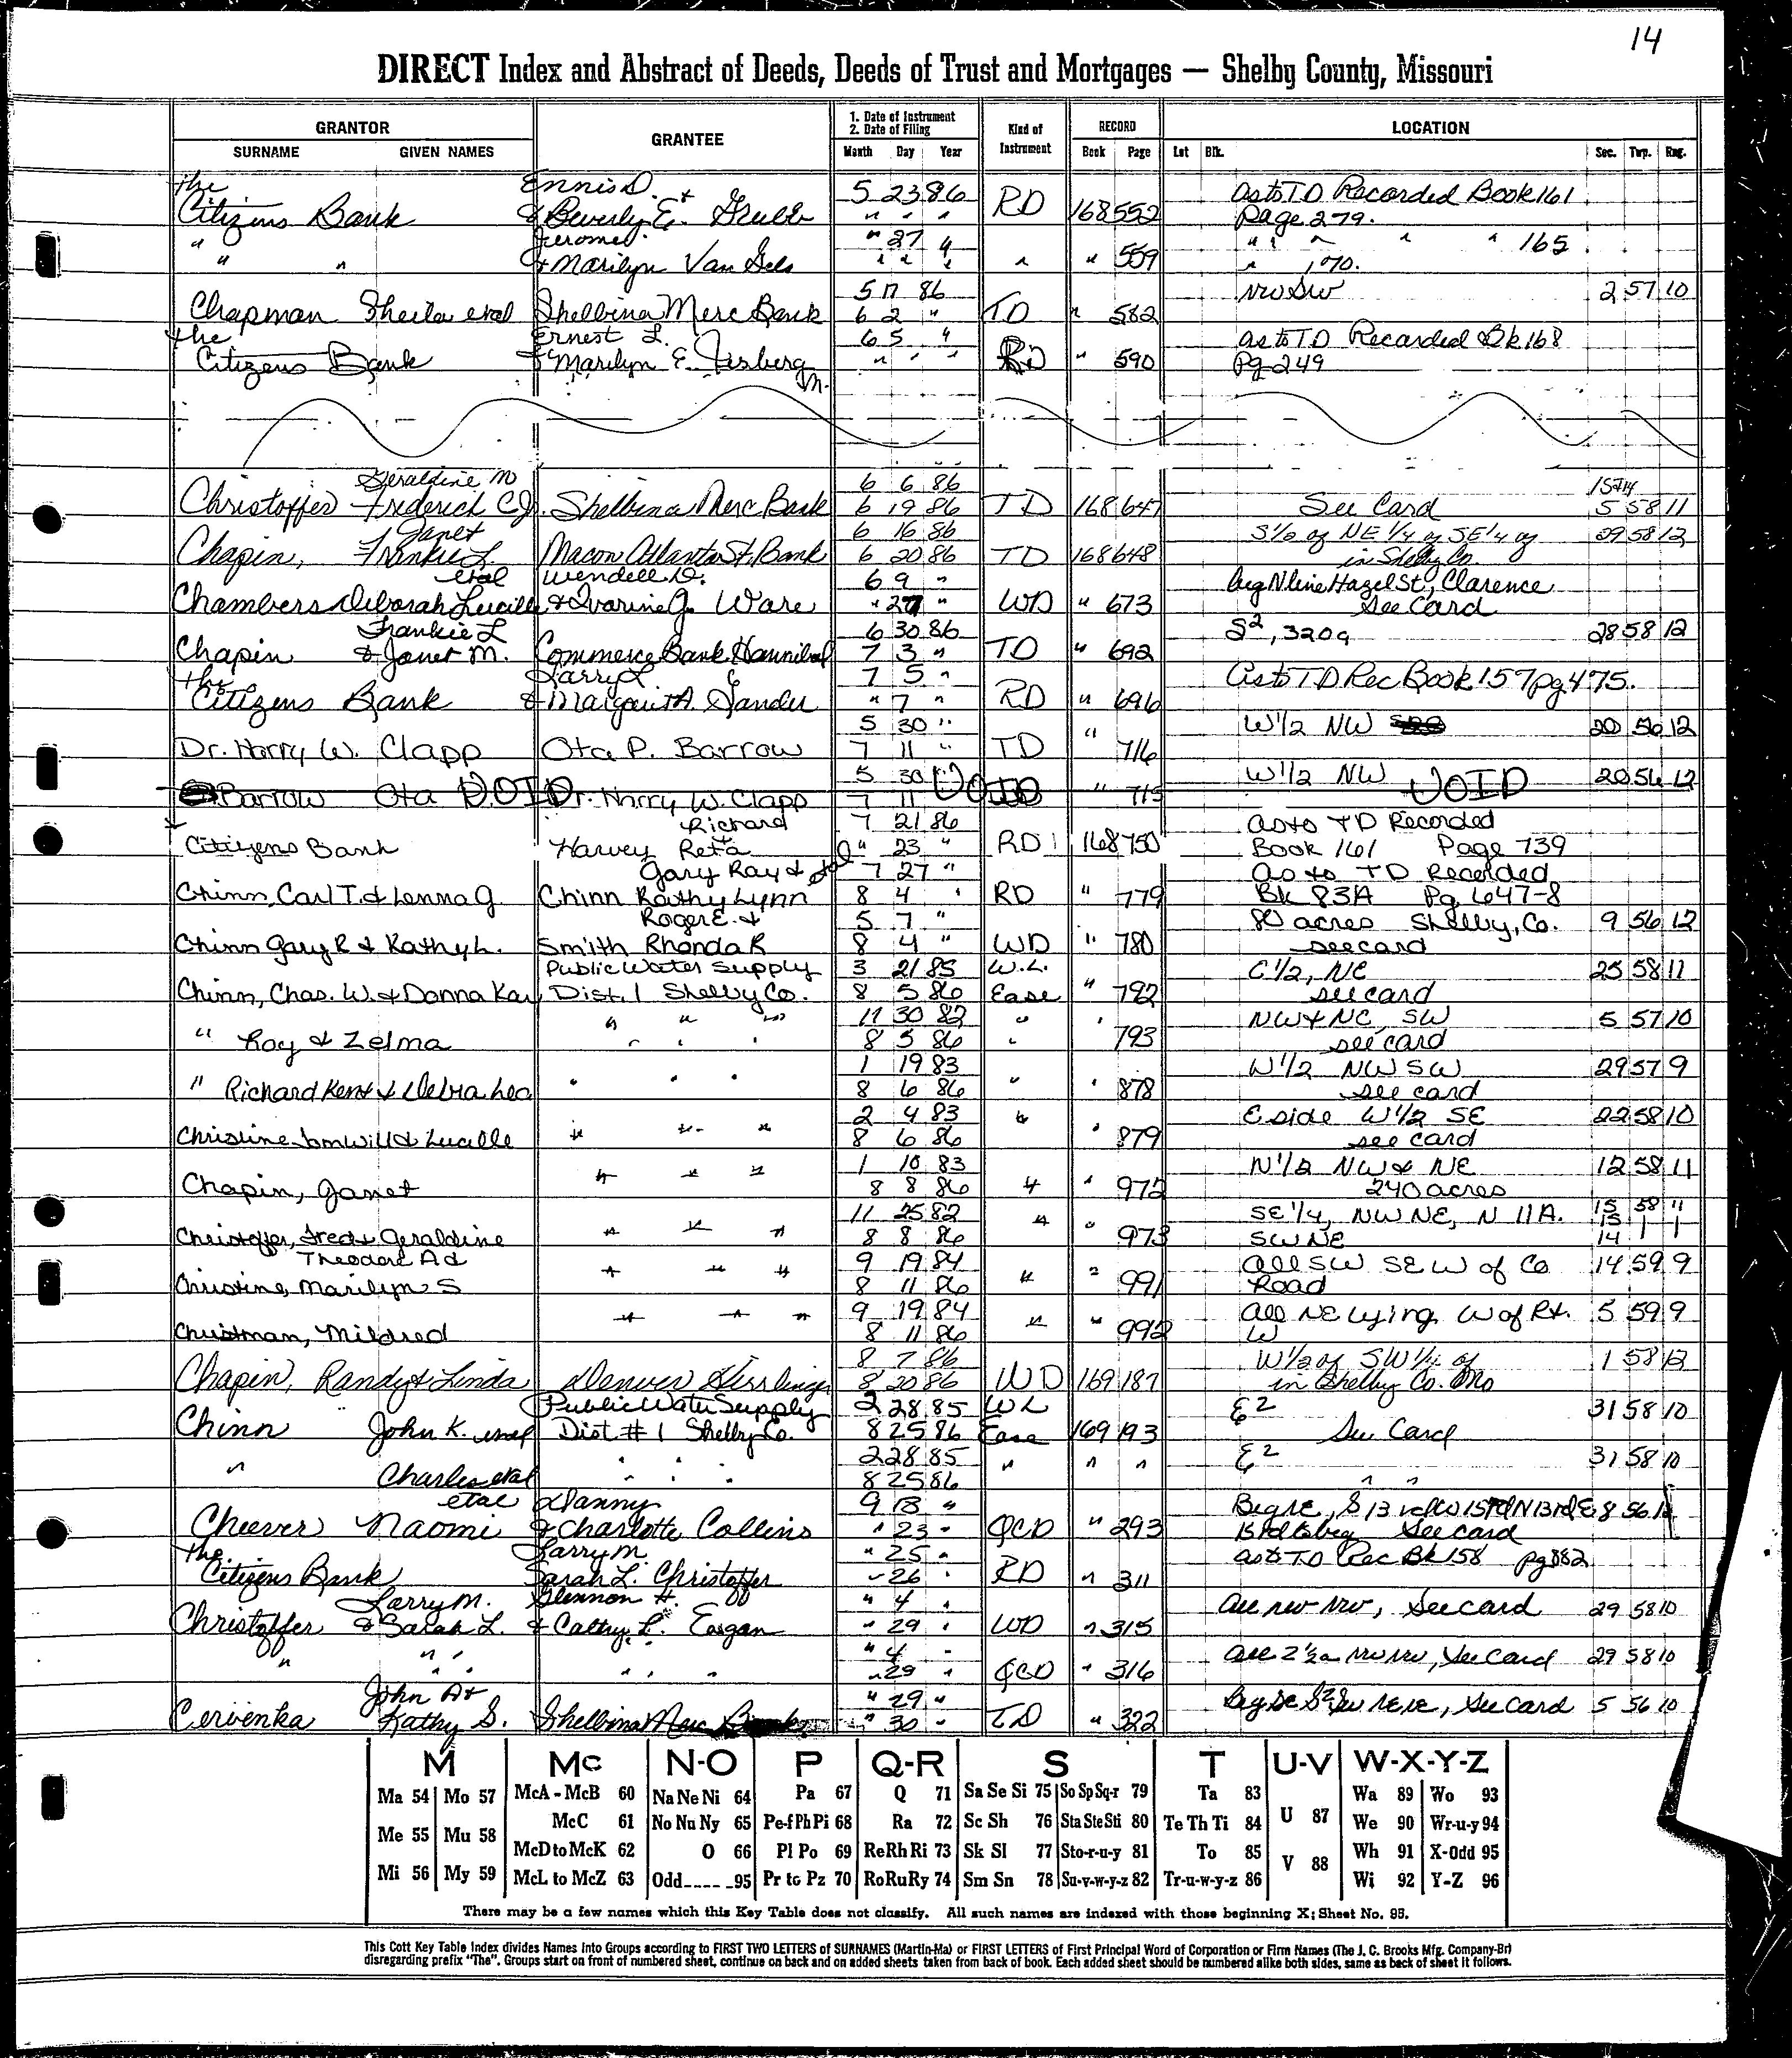 14
DIRECT Index and Abstract of Deeds, Deeds of Trust and Mortgages — Shelby County, Missouri
GRANTOR GRANTEE 1. Date of Instrument 2. Date of Filing Kind of Instrument RECORD LOCATION
SURNAME GIVEN NAMES Month Day Year Book Page Lot Blk. Sec. Twp. Rng.
the Ennis D. 5 23 86 RD as to TD Recorded Book 161
Citizens Bank & Beverly E. " " " 168 552 Page 279.
" Jerome " 27 " " " " " 165
" " & Marilyn Van " " " " " 559 " 170.
5 17 86 NW SW 2 57 10
Chapman Sheila etal Shelbina Merc Bank 6 2 " TD " 582
the Ernest L. 6 5 " as to TD Recorded Bk 168
Citizens Bank & Marilyn E. " " " RD " 590 Pg 249
Geraldine M 6 6 86
Christoffer Frederich C Jr. Shelbina Merc Bank 6 19 86 TD 168 647 See Card 5 58 11
Janet 6 16 86 S1/2 of NE 1/4 of SE1/4 of 29 58 12
Chapin, Frankie L. Macon Atlanta St. Bank 6 20 86 TD 168 648 in Shelby Co.
etal Wendell D. 6 9 " beg N line Hazel St, Clarence
Chambers Deborah Lucille & Ware " 27 " WD " 673 See Card
Frankie L 6 30 86 S2, 320a 28 58 12
Chapin & Janet M. Commerce Bank Hannibal 7 3 " TD " 692
the Larry L 7 5 " As to TD Rec Book 157 pg 475.
Citizens Bank & Margaret A. Sander " 7 " RD " 696
5 30 " W1/2 NW 20 56 12
Dr. Harry W. Clapp Ota P. Barrow 7 11 " TD " 716
5 30 VOID W1/2 NW VOID 20 56 12
Barrow Ota VOID Dr. Harry W. Clapp 7 11 " 715
Richard 7 21 86 as to TD Recorded
Citizens Bank Harvey Reta " 23 " RD 168 750 Book 161 Page 739
Gary Ray & 7 27 " as to TD Recorded
Chinn, Carl T. & Lenna G. Chinn Kathy Lynn 8 4 " RD " 779 Bk 83A Pg 647-8
Roger E. & 5 7 " 80 acres Shelby, Co. 9 56 12
Chinn Gary R & Kathy L. Smith Rhonda R 8 4 " WD " 780 see card
Public Water Supply 3 21 85 W.L. E 1/2, NE 25 58 11
Chinn, Chas. W. & Donna Kay Dist. 1 Shelby Co. 8 5 86 Ease " 792 see card
" " " 11 30 82 " NW & NE, SW 5 57 10
" Roy & Zelma 8 5 86 793 see card
" " " 1 19 83 W1/2 NW SW 29 57 9
" Richard Kent & Debra Lea 8 6 86 " 878 see card
2 4 83 " E side W1/2 SE 22 58 10
Christine Tom Will & Lucille " " " 8 6 86 879 see card
" " " 1 10 83 N1/2 NW & NE 12 58 11
Chapin, Janet 8 8 86 " " 972 240 acres
11 25 82 SE1/4, NW NE, N 11 A. 15 58 11
Christoffer, Fred & Geraldine " " " 8 8 86 " " 973 SW NE 14
Theodore A & 9 19 84 All SW SE W of Co 14 59 9
Christine, Marilyn S " " " 8 11 86 " " 991 Road
9 19 84 All NE Lying W of Rt. 5 59 9
Christman, Mildred " " " 8 11 86 " " 992 W
8 7 86 W1/2 of SW1/4 of 1 58 12
Chapin, Randy & Linda Denver 8 20 86 WD 169 187 in Shelby Co. Mo
Public Water Supply 2 28 85 WL E2 31 58 10
Chinn John K. etal Dist # 1 Shelby Co. 8 25 86 Ease 169 193 See Card
2 28 85 E2 31 58 10
" Charles etal " " " 8 25 86 " " " " "
etal Danny 9 13 " 8 56 12
Cheever Naomi & Charlotte Collins " 23 " QCD " 293 See card
the Larry M. " 25 " as to TD Rec Bk 158 pg 882
Citizens Bank Sarah L. Christoffer " 26 " RD " 311
Larry M. Glennon H. " 4 " All NW NW, See card 29 58 10
Christoffer & Sarah L. & Cathy L. Eagan " 29 " WD " 315
" " " " 4 " All 2 1/2 a NW NW, See Card 29 58 10
" " " " 29 " QCD " 316
John A & " 29 " See Card 5 56 10
Cervenka Kathy S. Shelbina Merc Bank " 30 " TD " 322
M Mc N-O P Q-R S T U-V W-X-Y-Z
Ma 54 Mo 57 McA - McB 60 Na Ne Ni 64 Pa 67 Q 71 Sa Se Si 75 So Sp Sq-r 79 Ta 83 U 87 Wa 89 Wo 93
Me 55 Mu 58 McC 61 No Nu Ny 65 Pe-f Ph Pi 68 Ra 72 Sc Sh 76 Sta Ste Sti 80 Te Th Ti 84 We 90 Wr-u-y 94
McD to McK 62 O 66 Pl Po 69 Re Rh Ri 73 Sk Sl 77 Sto-r-u-y 81 To 85 V 88 Wh 91 X-Odd 95
Mi 56 My 59 McL to McZ 63 Odd 95 Pr to Pz 70 Ro Ru Ry 74 Sm Sn 78 Su-v-w-y-z 82 Tr-u-w-y-z 86 Wi 92 Y-Z 96
There may be a few names which this Key Table does not classify. All such names are indexed with those beginning X; Sheet No. 95.
This Cott Key Table Index divides Names into Groups according to FIRST TWO LETTERS of SURNAMES (Martin-Ma) or FIRST LETTERS of First Principal Word of Corporation or Firm Names (The J. C. Brooks Mfg. Company-Br)
disregarding prefix "The". Groups start on front of numbered sheet, continue on back and on added sheets taken from back of book. Each added sheet should be numbered alike both sides, same as back of sheet it follows.